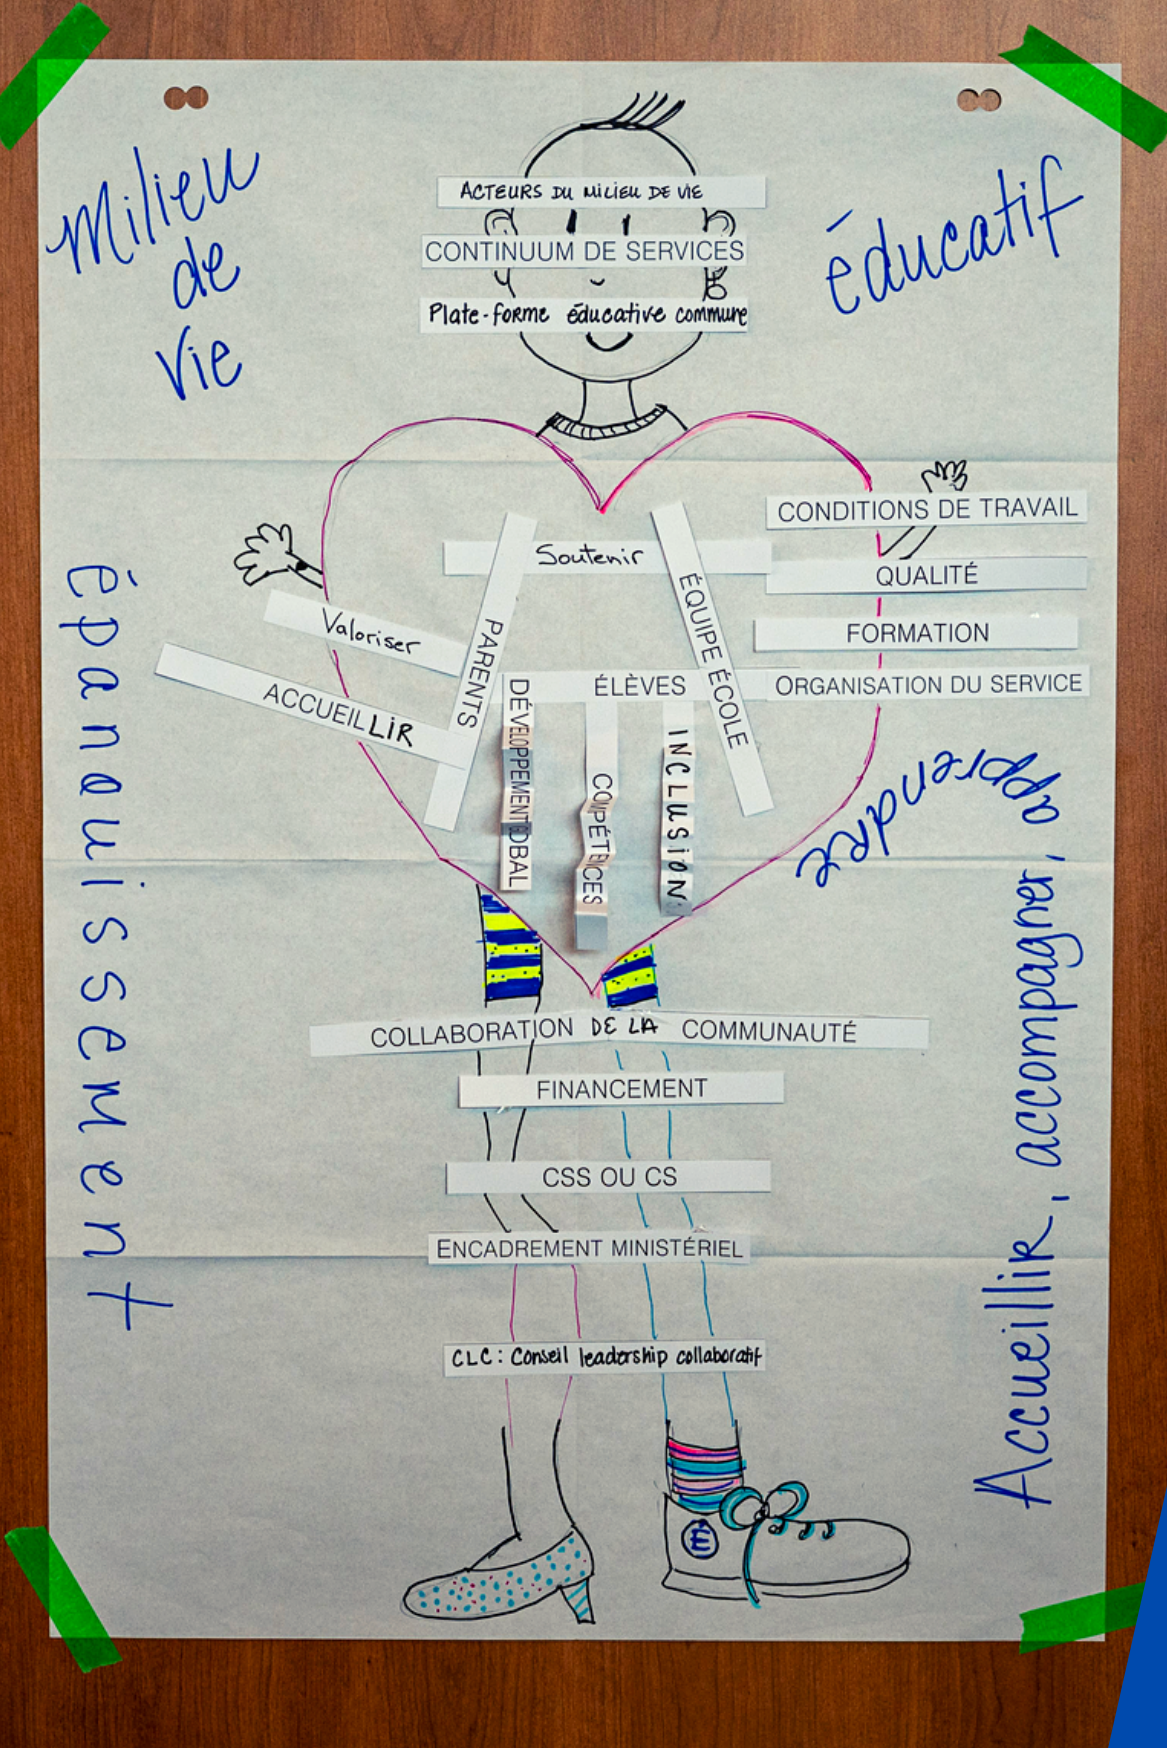 Milieu
de
vie
éducatif
ACTEURS DU MILIEU DE VIE
CONTINUUM DE SERVICES
Plate-forme éducative commune
CONDITIONS DE TRAVAIL
Soutenir
QUALITÉ
Valoriser
FORMATION
PARENTS
ÉQUIPE ÉCOLE
ACCUEILLIR
ÉLÈVES
ORGANISATION DU SERVICE
DÉVELOPPEMENT GLOBAL
COMPÉTENCES
INCLUSION
Épanouissement
Accueillir, accompagner, apprendre
COLLABORATION DE LA COMMUNAUTÉ
FINANCEMENT
CSS OU CS
ENCADREMENT MINISTÉRIEL
CLC : Conseil leadership collaboratif
É